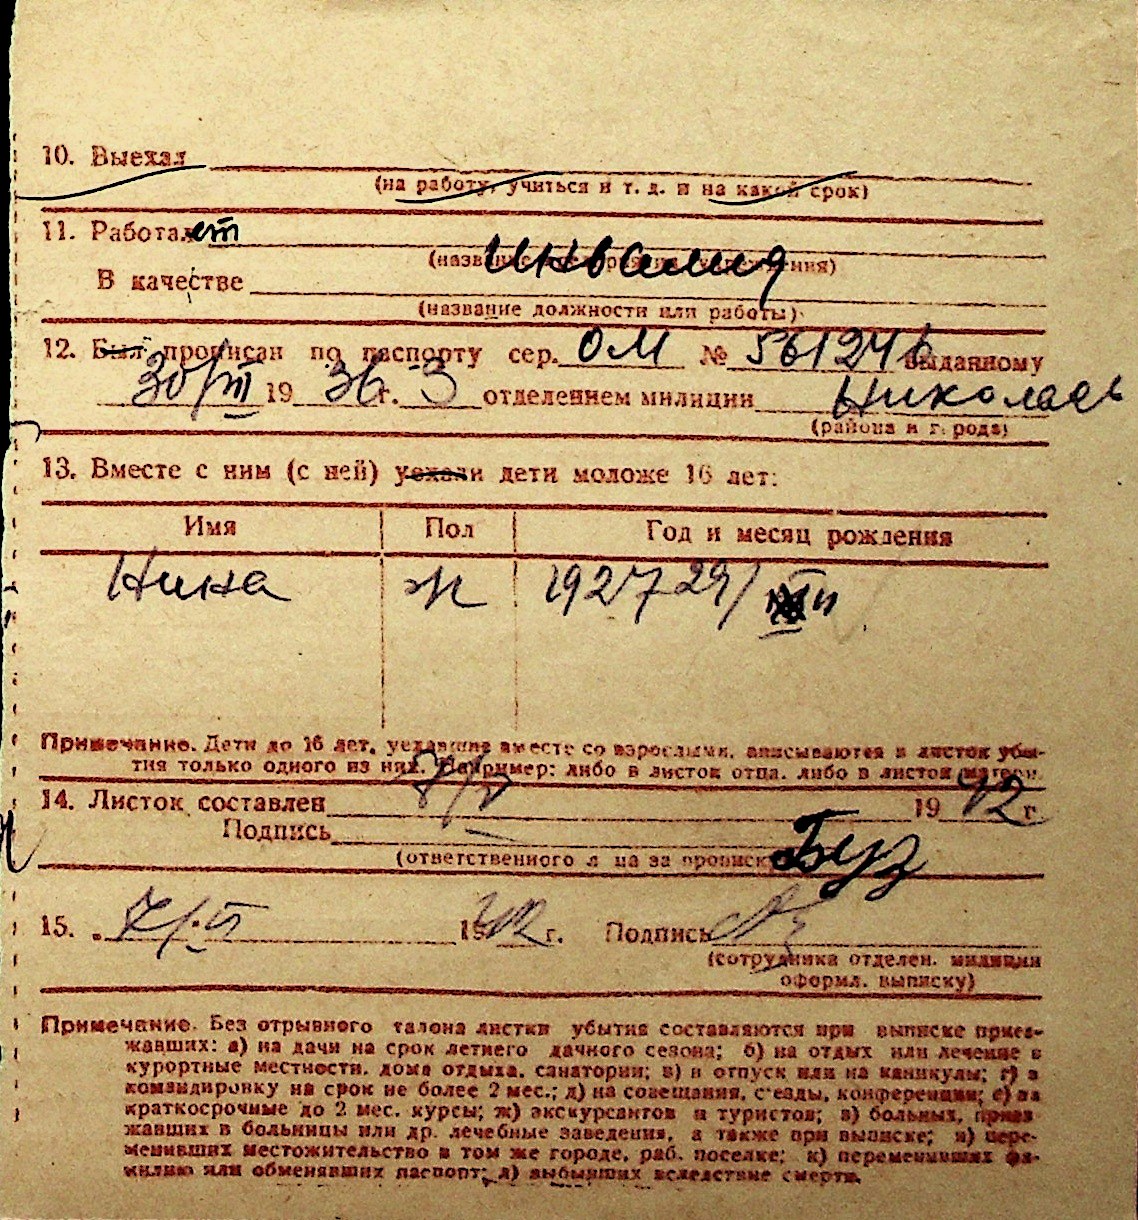 10. Выехал
(на работу, учиться и т. д. и на какой срок)
11. Работает
инвалид
(название предприятия, учреждения)
В качестве
(название должности или работы)
12. Был прописан по паспорту сер. ОМ № 561274 выданному
30/III 1936 г. 3 отделением милиции Николаев
(района и города)
13. Вместе с ним (с ней) уехали дети моложе 16 лет:
Имя Пол Год и месяц рождения
Нина ж 1927 29/
Примечание. Дети до 16 лет, уехавшие вместе со взрослыми, вписываются в листок убы-
тия только одного из них. Например: либо в листок отца, либо в листок матери.
14. Листок составлен 1942 г.
Подпись Буз
(ответственного лица за прописку)
15. 7/II 1942 г. Подпись
(сотрудника отделен. милиции
оформл. выписку)
Примечание. Без отрывного талона листки убытия составляются при выписке приез-
жавших: а) на дачи на срок летнего дачного сезона; б) на отдых или лечение в
курортные местности, дома отдыха, санатории; в) в отпуск или на каникулы; г) в
командировку на срок не более 2 мес.; д) на совещания, съезды, конференции; е) на
краткосрочные до 2 мес. курсы; ж) экскурсантов и туристов; з) больных, приез-
жавших в больницы или др. лечебные заведения, а также при выписке; и) пере-
менивших местожительство в том же городе, раб. поселке; к) переменивших фа-
милию или обменявших паспорт; л) выбывших вследствие смерти.